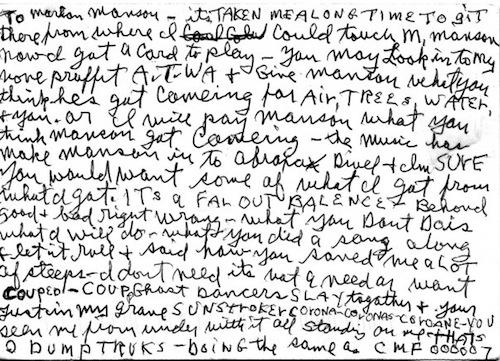 To marlon manson – its TAKEN ME ALONG TIME TO giT
there from where I could touch M, manson
now I got a card to play – you may look in to my
none proffit A.T.WA + Give manson what you
think hes got comeing for AIR, TREES, WATER,
+ you. or I will pay manson what you
think manson got comeing – the music has
make manson in to Abraxas Divel + I'm SURE
you would want some of what I got from
what I got. IT's a FAR OUT BALENCE – Behond
good + bad right wrong – what you Dont Do is
what I will do – what you did a sang along
+ let it roll + said how you saved me a lot
of steeps – I dont need it's not a need or want
COUPED – COUP. Ghost Dancers SLAY together + your
just in my grave SUNSTROKER CORONA–CORONAS–CORONE – YOU
seen me from under with it all standing on me THATS
2 DUMPTRUKS – DOING the same as CMF 000007